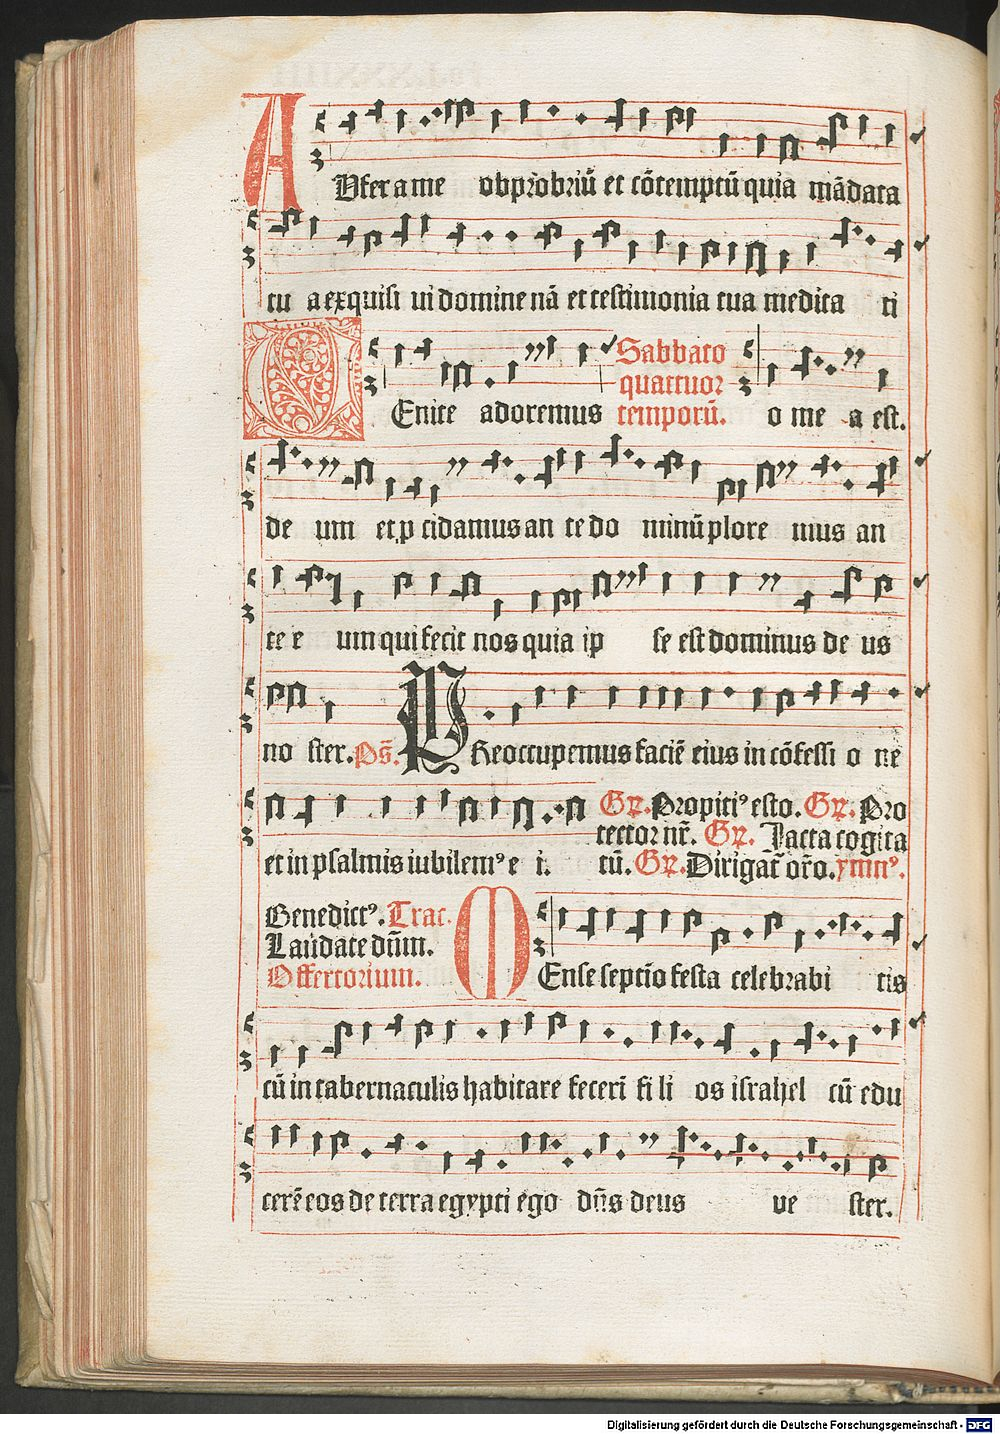 AUfer a me obprobriũ et cõtemptũ quia mãdata
tu a exquisi ui domine nã et testimonia tua medita ti
o me a est.
Sabbato
quattuor
temporũ.
VEnite adoremus
de um et ꝓcidamus an te do minũ plore mus an
te e um qui fecit nos quia ip se est dominus de us
no ster. Ps̃. PReoccupemus faciẽ eius in cõfessi o ne
et in psalmis iubilemꝰ e i.
Gr̃. Propitiꝰ esto. Gr̃. Pro
tector nr̃. Gr̃. Iacta cogita
tũ. Gr̃. Dirigat̃ or̃o. ymnꝰ.
Benedictꝰ. Trac.
Laudate dñm.
Offertorium.
MEnse septĩo festa celebrabi tis
cũ in tabernaculis habitare fecerĩ fi li os israhel cũ edu
cerẽ eos de terra egypti ego dñs deus ve ster.
Digitalisierung gefördert durch die Deutsche Forschungsgemeinschaft - DFG